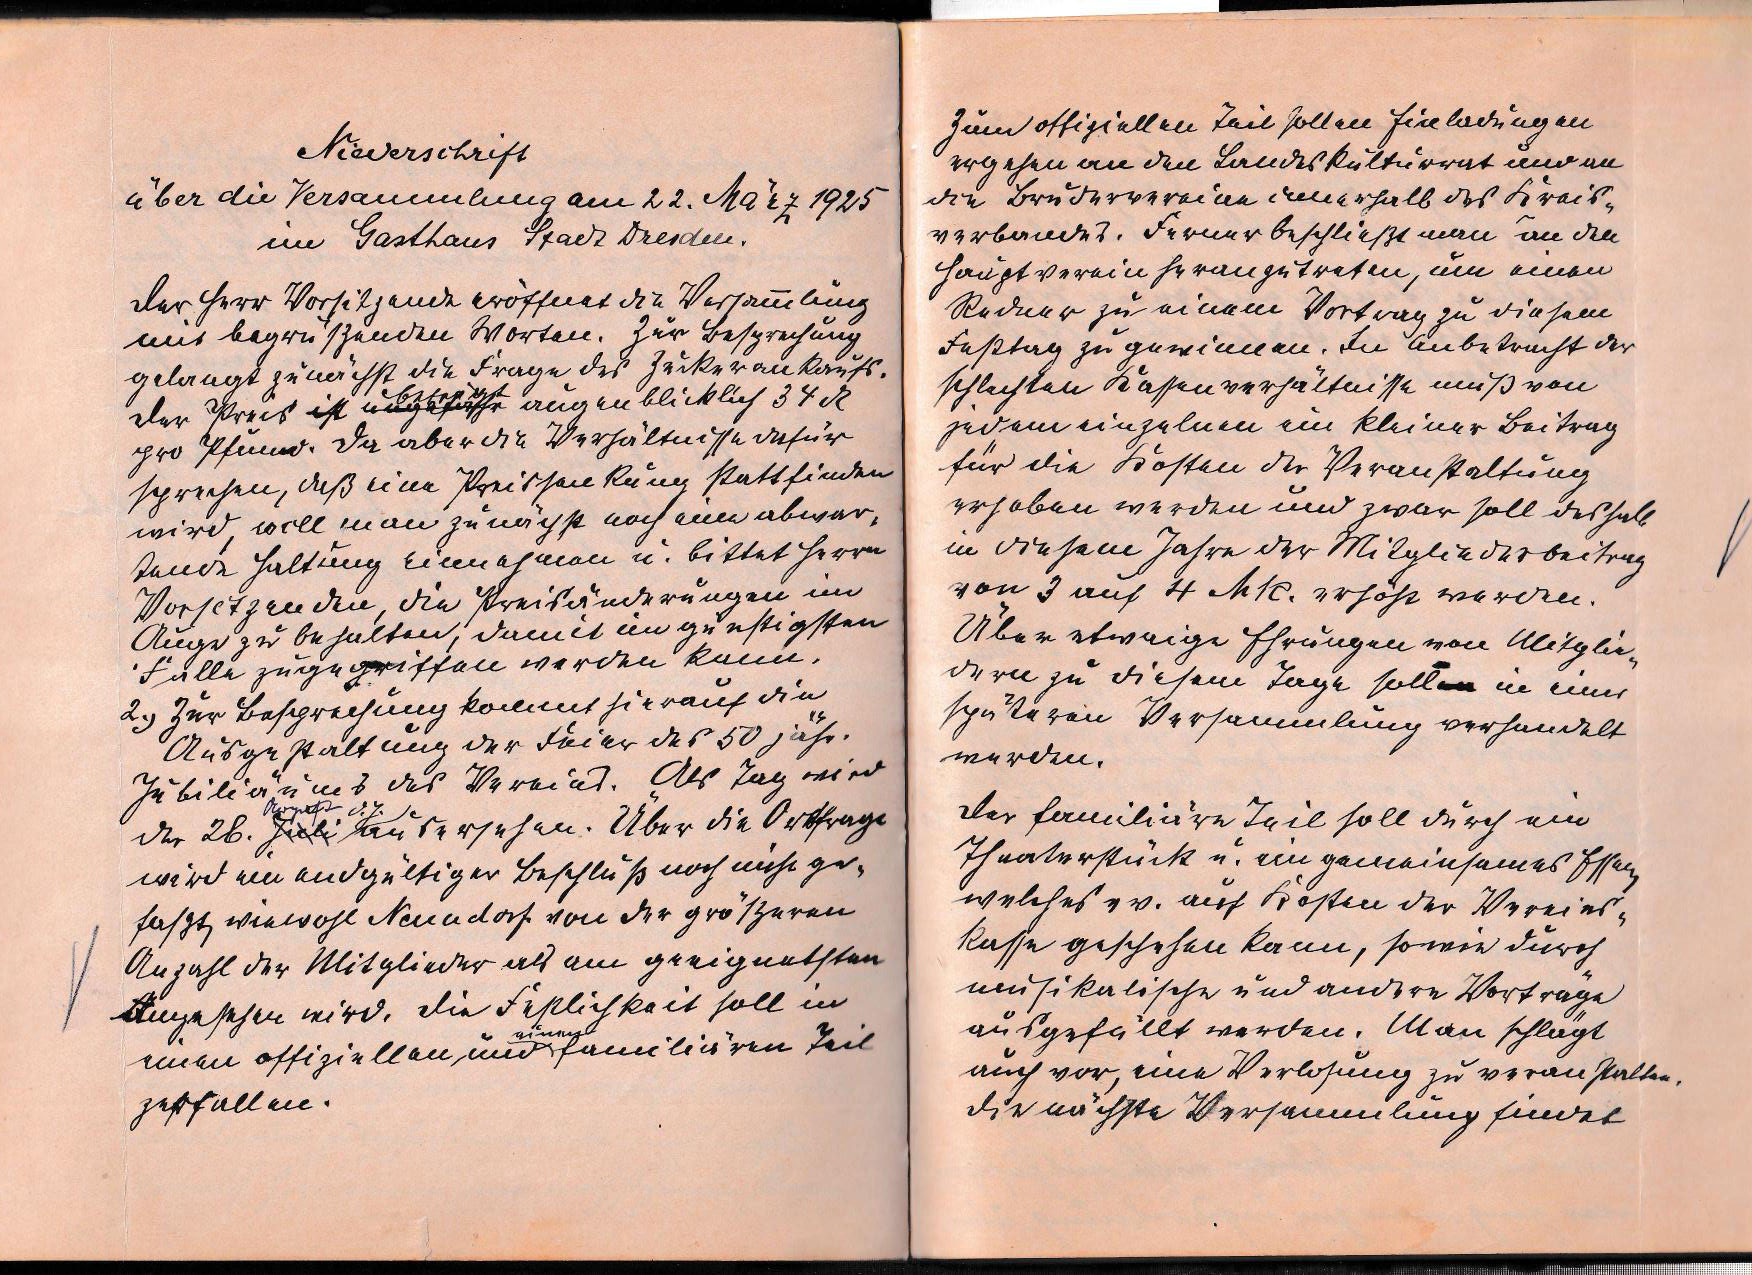 Niederschrift
über die Versammlung am 22. März 1925
im Gasthaus Stadt Dresden.
Der Herr Vorsitzende eröffnet die Versam̅lung
mit begrüßenden Worten. Zur Besprechung
gelangt zunächst die Frage des Zuckerankaufs.
beträgt
Der Preis ist ungefähr augenblicklich 34 ₰
pro Pfund. Da aber die Verhältnisse dafür
sprechen, daß eine Preissenkung stattfinden
wird, will man zunächst noch eine abwar-
tende Haltung einnehmen u. bittet Herrn
Vorsitzenden, die Preisänderungen im
Auge zu behalten, damit im günstigsten
Falle zugegriffen werden kann.
2.) Zur Besprechung kommt hierauf die
Ausgestaltung der Feier des 50 jähr.
Jubiläums des Vereins. Als Tag wird
August d.J.
der 26. Juli ausersehen. Über die Ortsfrage
wird ein endgültiger Beschluß noch nicht ge-
faßt, wiewohl Naundorf von der größeren
Anzahl der Mitglieder als am geeignetsten
angesehen wird. Die Festlichkeit soll in
einen
einen offiziellen und familiären Teil
zerfallen.
Zum offiziellen Teil sollen Einladungen
ergehen an den Landeskulturrat und an
die Brudervereine innerhalb des Kreis-
verbandes. Ferner beschließt man an den
Hauptverein heranzutreten, um einen
Redner zu einem Vortrag zu diesem
Festtag zu gewinnen. In Anbetracht der
schlechten Kassenverhältnisse muß von
jedem einzelnen ein kleiner Beitrag
für die Kosten der Veranstaltung
erhoben werden und zwar soll deshalb
in diesem Jahre der Mitgliederbeitrag
von 3 auf 4 Mk. erhöht werden.
Über etwaige Ehrungen von Mitglie-
dern zu diesem Tage soll in einer
späteren Versammlung verhandelt
werden.
Der familiäre Teil soll durch ein
Theaterstück u. ein gemeinsames Essen,
welches ev. auf Kosten der Vereins-
kasse geschehen kann, sowie durch
musikalische und andere Vorträge
ausgefüllt werden. Man schlägt
auch vor, eine Verlosung zu veranstalten.
Die nächste Versammlung findet